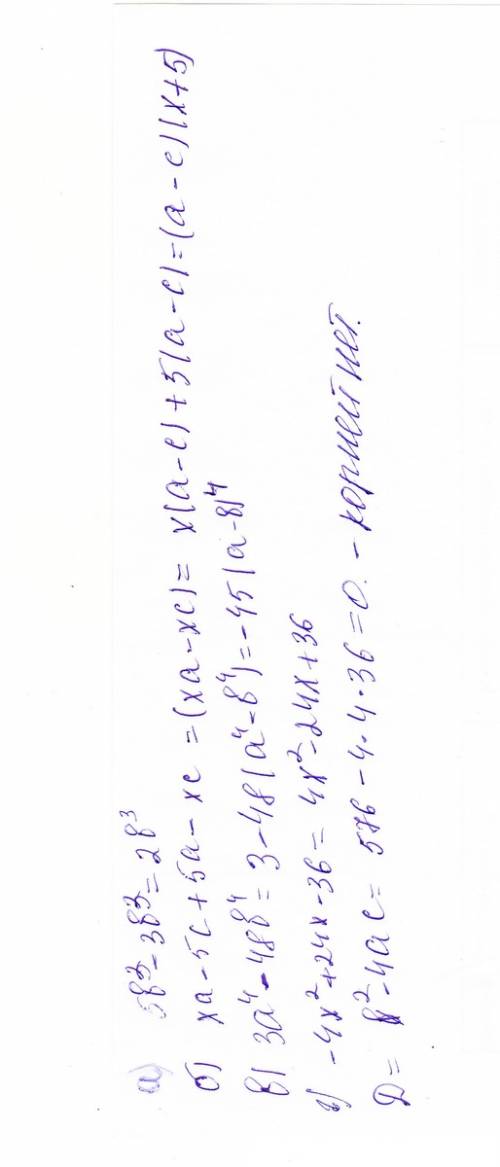 а) 5в³-3в³=2в³
б) xa-5c+5a-xc=(xa-xc)=x(a-c)+5(a-c)=(a-c)(x+5)
в) 3a⁴-48в⁴=3-48(a⁴-в⁴)=-45(a-в)⁴
г) -4x²+24x-36=4x²-24x+36
Д=в²-4ac=576-4•4•36=0. - корней нет.